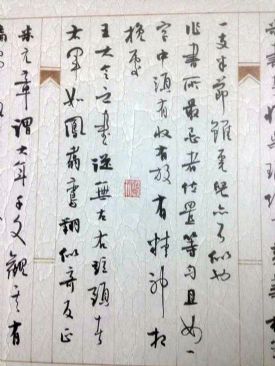 一支半節雖亦不似也
作書所最忌者位置等勻且如一
字中須有收有放有精神相
挽處
王大令之書從無左右並頭者
右軍如鳳翥鸞翔似奇反正
米元章謂大年千文觀其有